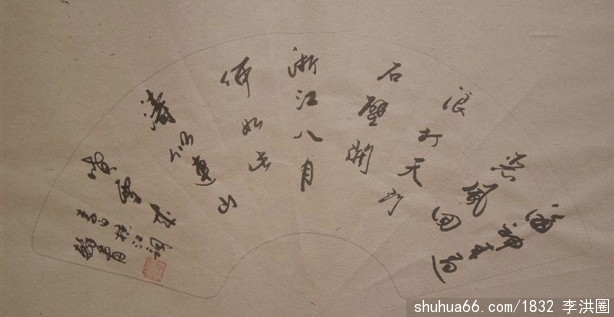 海神来過
惡風回
浪打天门
石壁開
浙江八月
何如此
濤似連山
喷雪来
李白横江词
shuhua66.com/1832 李洪圈